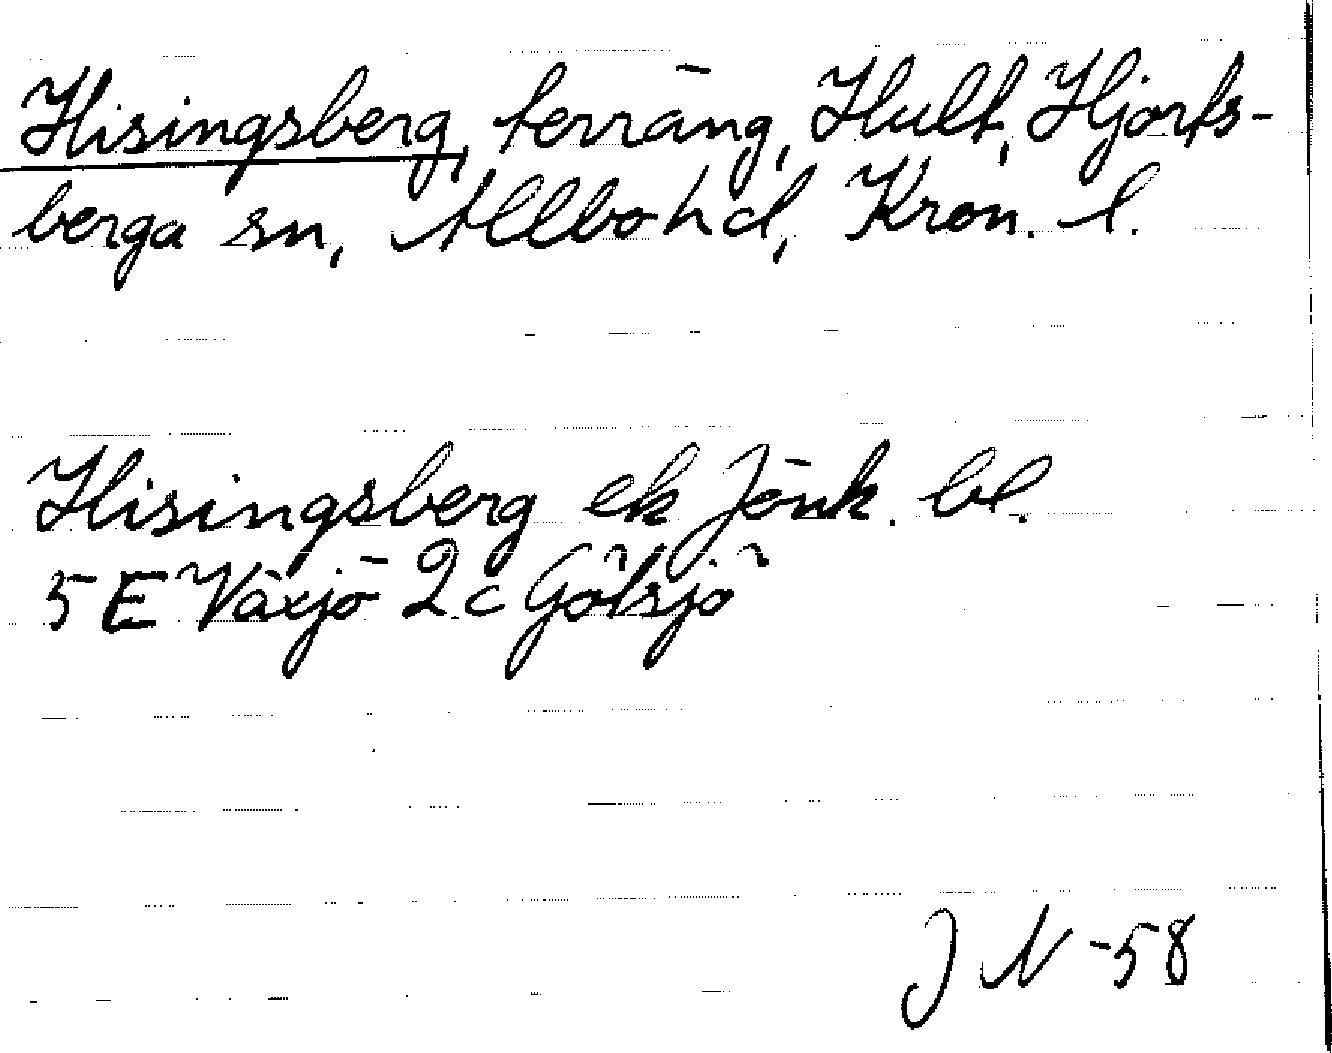 Hisingsberg, terräng, Hult, Hjorts-
berga sn, Allbo hd, Kron. l.
Hisingsberg ek Jönk. bl.
5E Växjö 2c Götsjö
J N -58